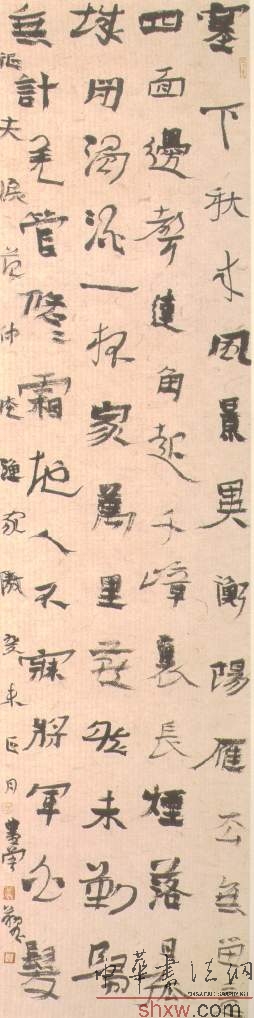 塞下秋来風景異衡陽雁去無留意
四面邊聲連角起千嶂裏長煙落日孤
城閉濁酒一杯家萬里燕然未勒歸
無計羌管悠〻霜地人不寐將軍白髮
征夫淚 范仲淹漁家傲 癸未 月
中華書法網
shxw.com